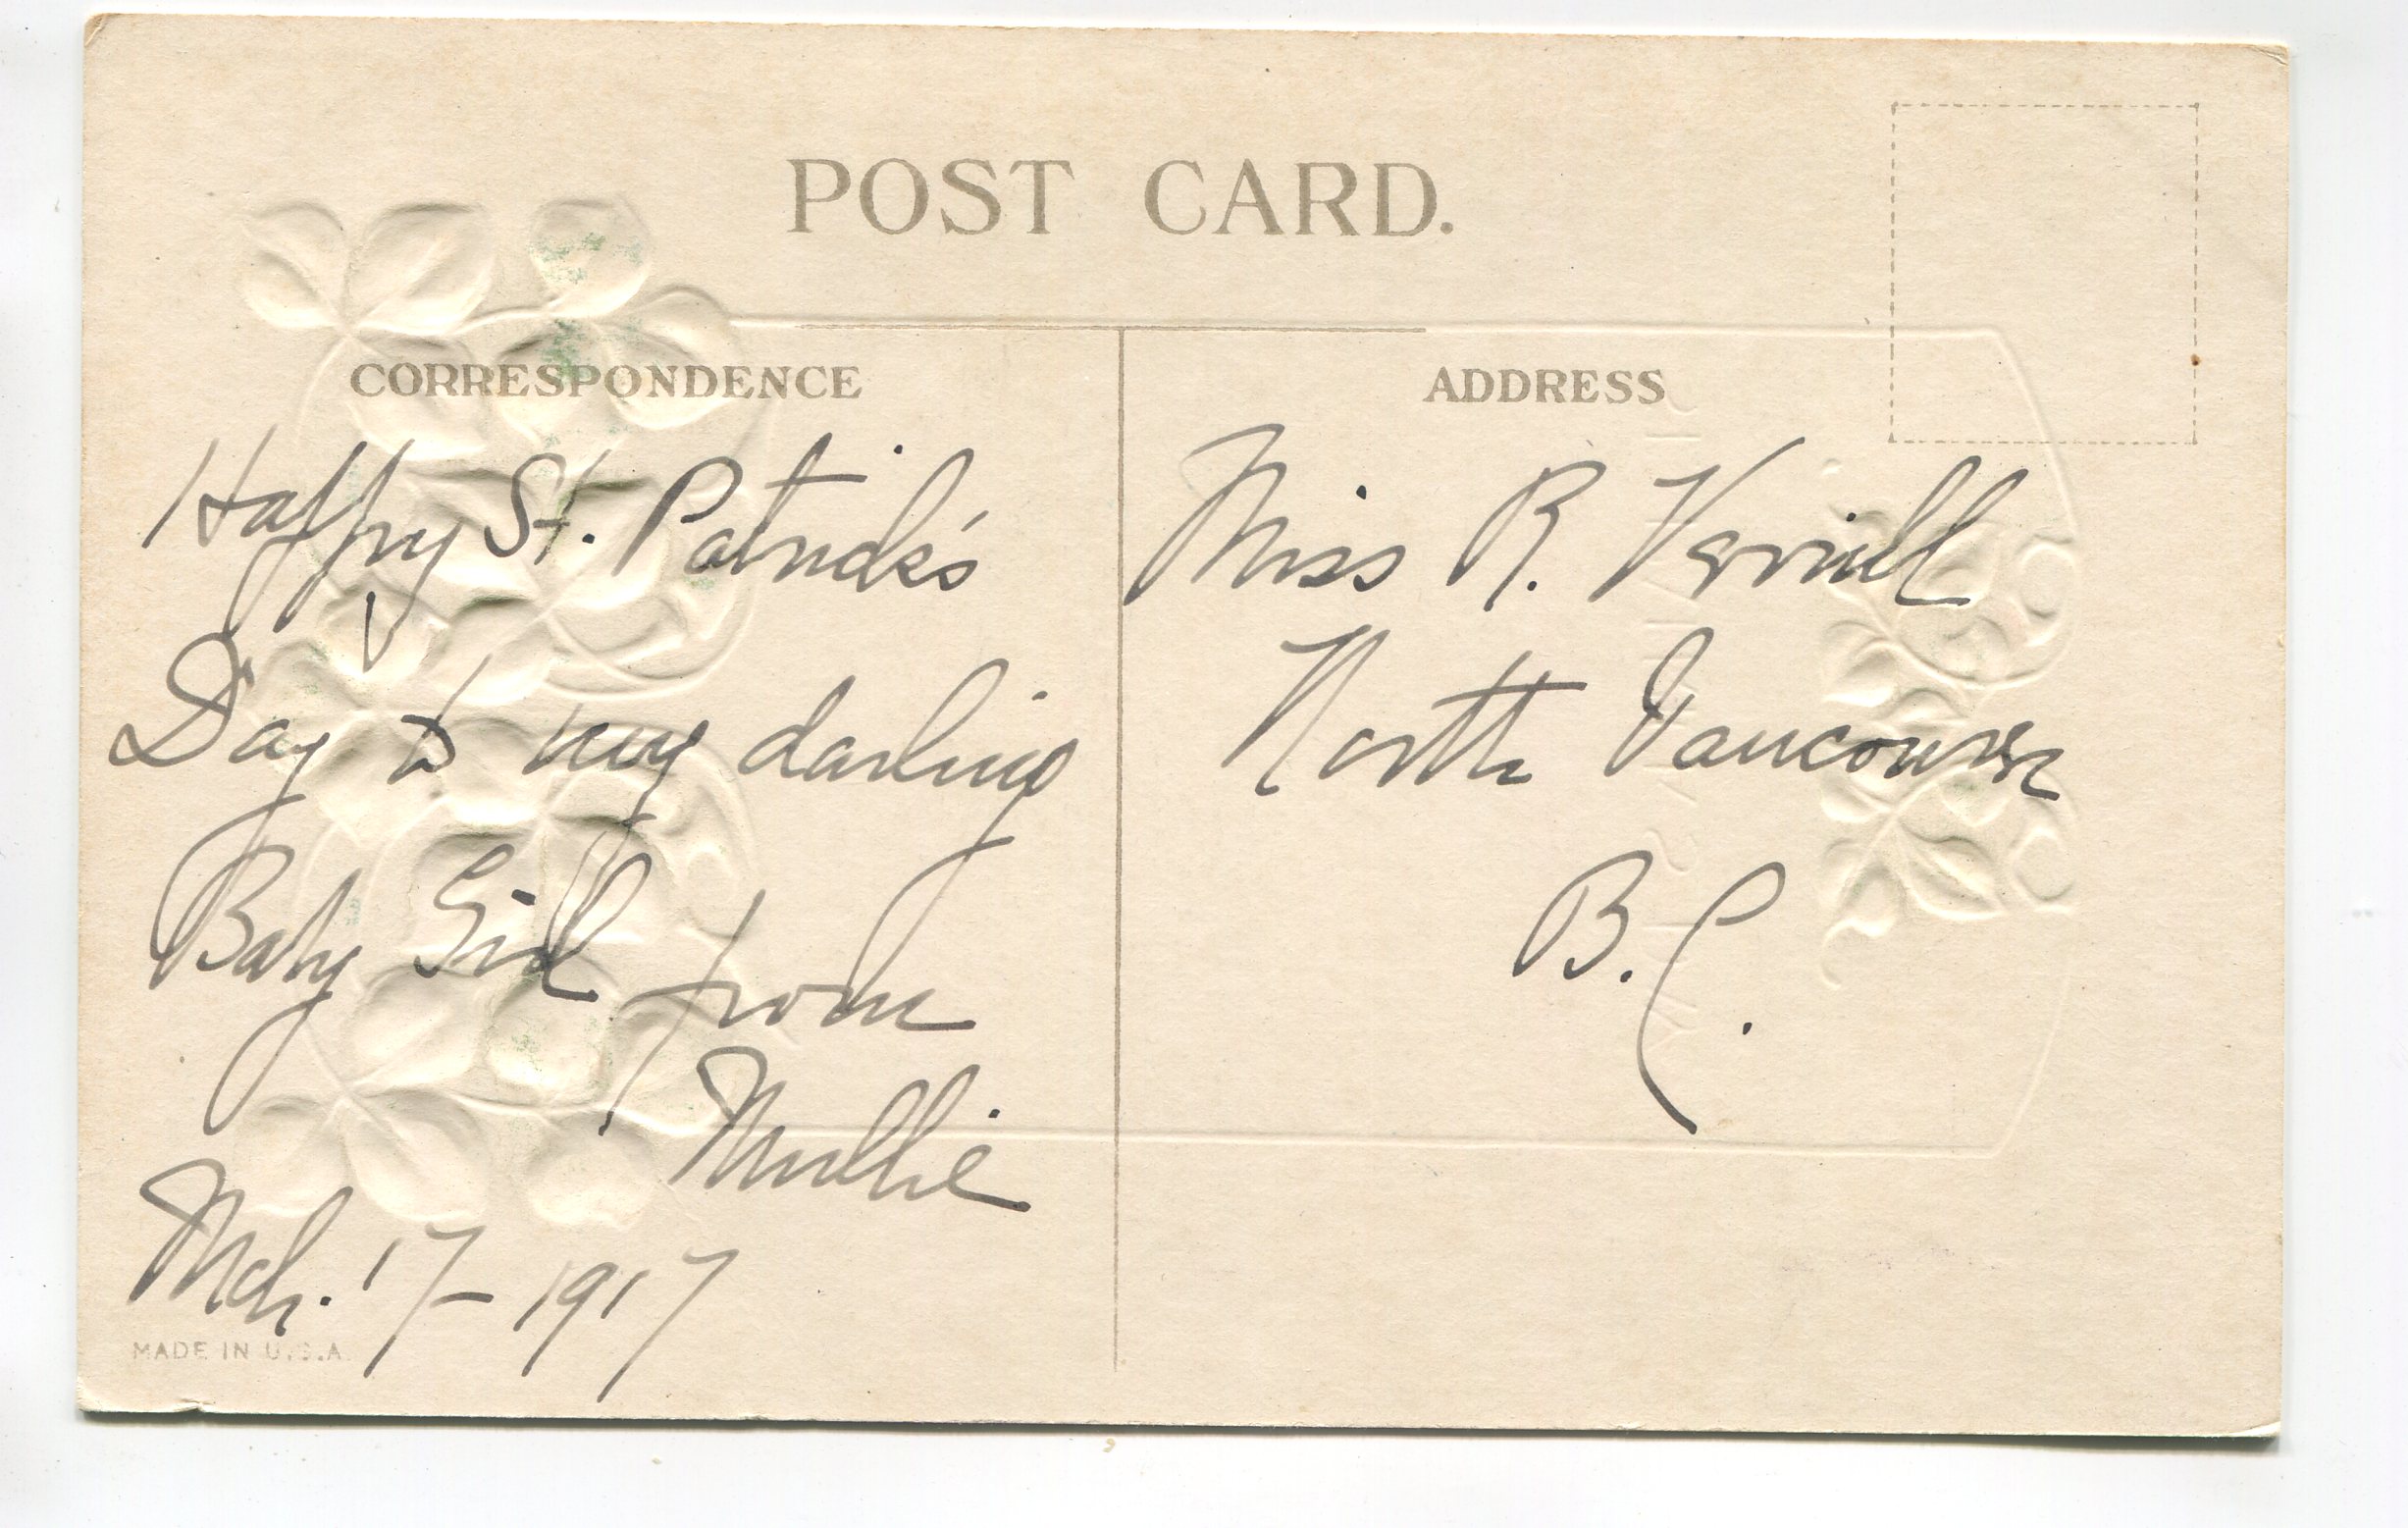 POST CARD.
CORRESPONDENCE
Happy St. Patrick's
Day to my darling
Baby Girl from
Mullie
Mch. 17 - 1917
MADE IN U.S.A.
ADDRESS
Miss R. Verrill
North Vancouver
B.C.